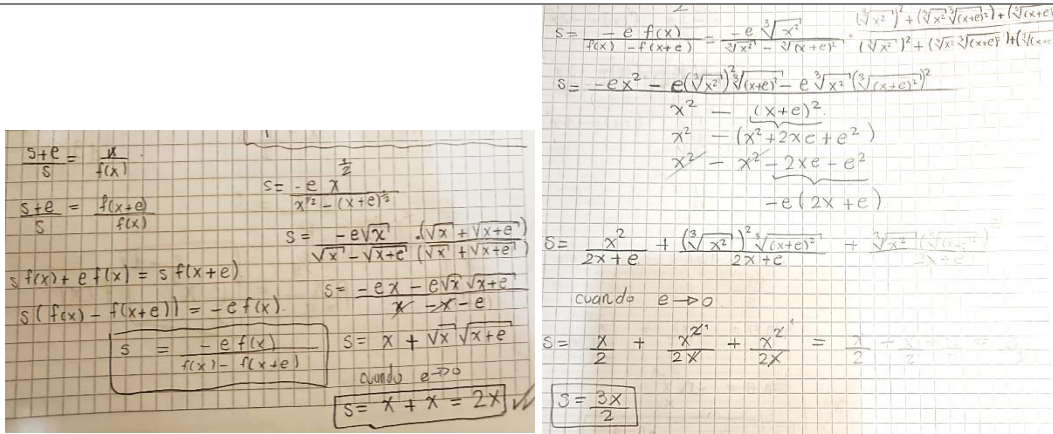 s+e/s = x/f(x)
s+e/s = f(x+e)/f(x)
s f(x) + e f(x) = s f(x+e)
s(f(x) - f(x+e)) = -e f(x).
s = -e f(x) / f(x) - f(x+e)
s = -e x^½ / x^½ - (x+e)^½
s = -e√x / √x - √x+e · (√x + √x+e) / (√x + √x+e)
s = -ex - e√x √x+e / x - x - e
s = x + √x √x+e
cuando e→0
s = x + x = 2x
s = -e f(x) / f(x) - f(x+e) = -e ∛x² / ∛x² - ∛(x+e)² · (∛x²)² + (∛x² ∛(x+e)²) + (∛(x+e) / (∛x²)² + (∛x² ∛(x+e)²) + (∛(x+e
s = -ex² - e(∛x²)² ∛(x+e)² - e ∛x² (∛(x+e)²)²
x² - (x+e)²
x² - (x² + 2xe + e²)
x² - x² - 2xe - e²
-e(2x+e)
s = x² / 2x+e + (∛x²)² ∛(x+e)² / 2x+e + ∛x² (∛(x+e)²)² / 2x+e
cuando e→0
s = x/2 + x²/2x + x²/2x = x/2 + x/2 +
s = 3x/2